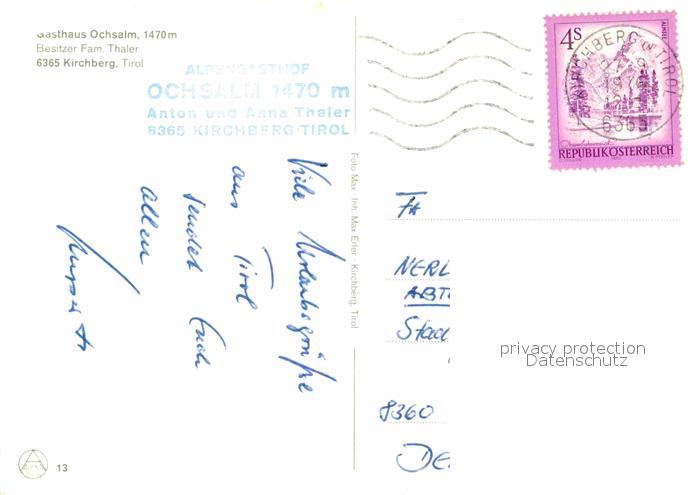 Gasthaus Ochsalm, 1470m
Besitzer Fam. Thaler
6365 Kirchberg, Tirol
ALPENGASTHOF
OCHSALM 1470 m
Anton und Anna Thaler
6365 KIRCHBERG/TIROL
4S
KIRCHBERG IN TIROL
636
REPUBLIK ÖSTERREICH
Viele Urlaubsgrüße
aus Tirol
sendet Euch
allen
Foto Max, Inh. Max Erler · Kirchberg, Tirol
FA
NERL
ABT
Stad
8360
DE
privacy protection
Datenschutz
13